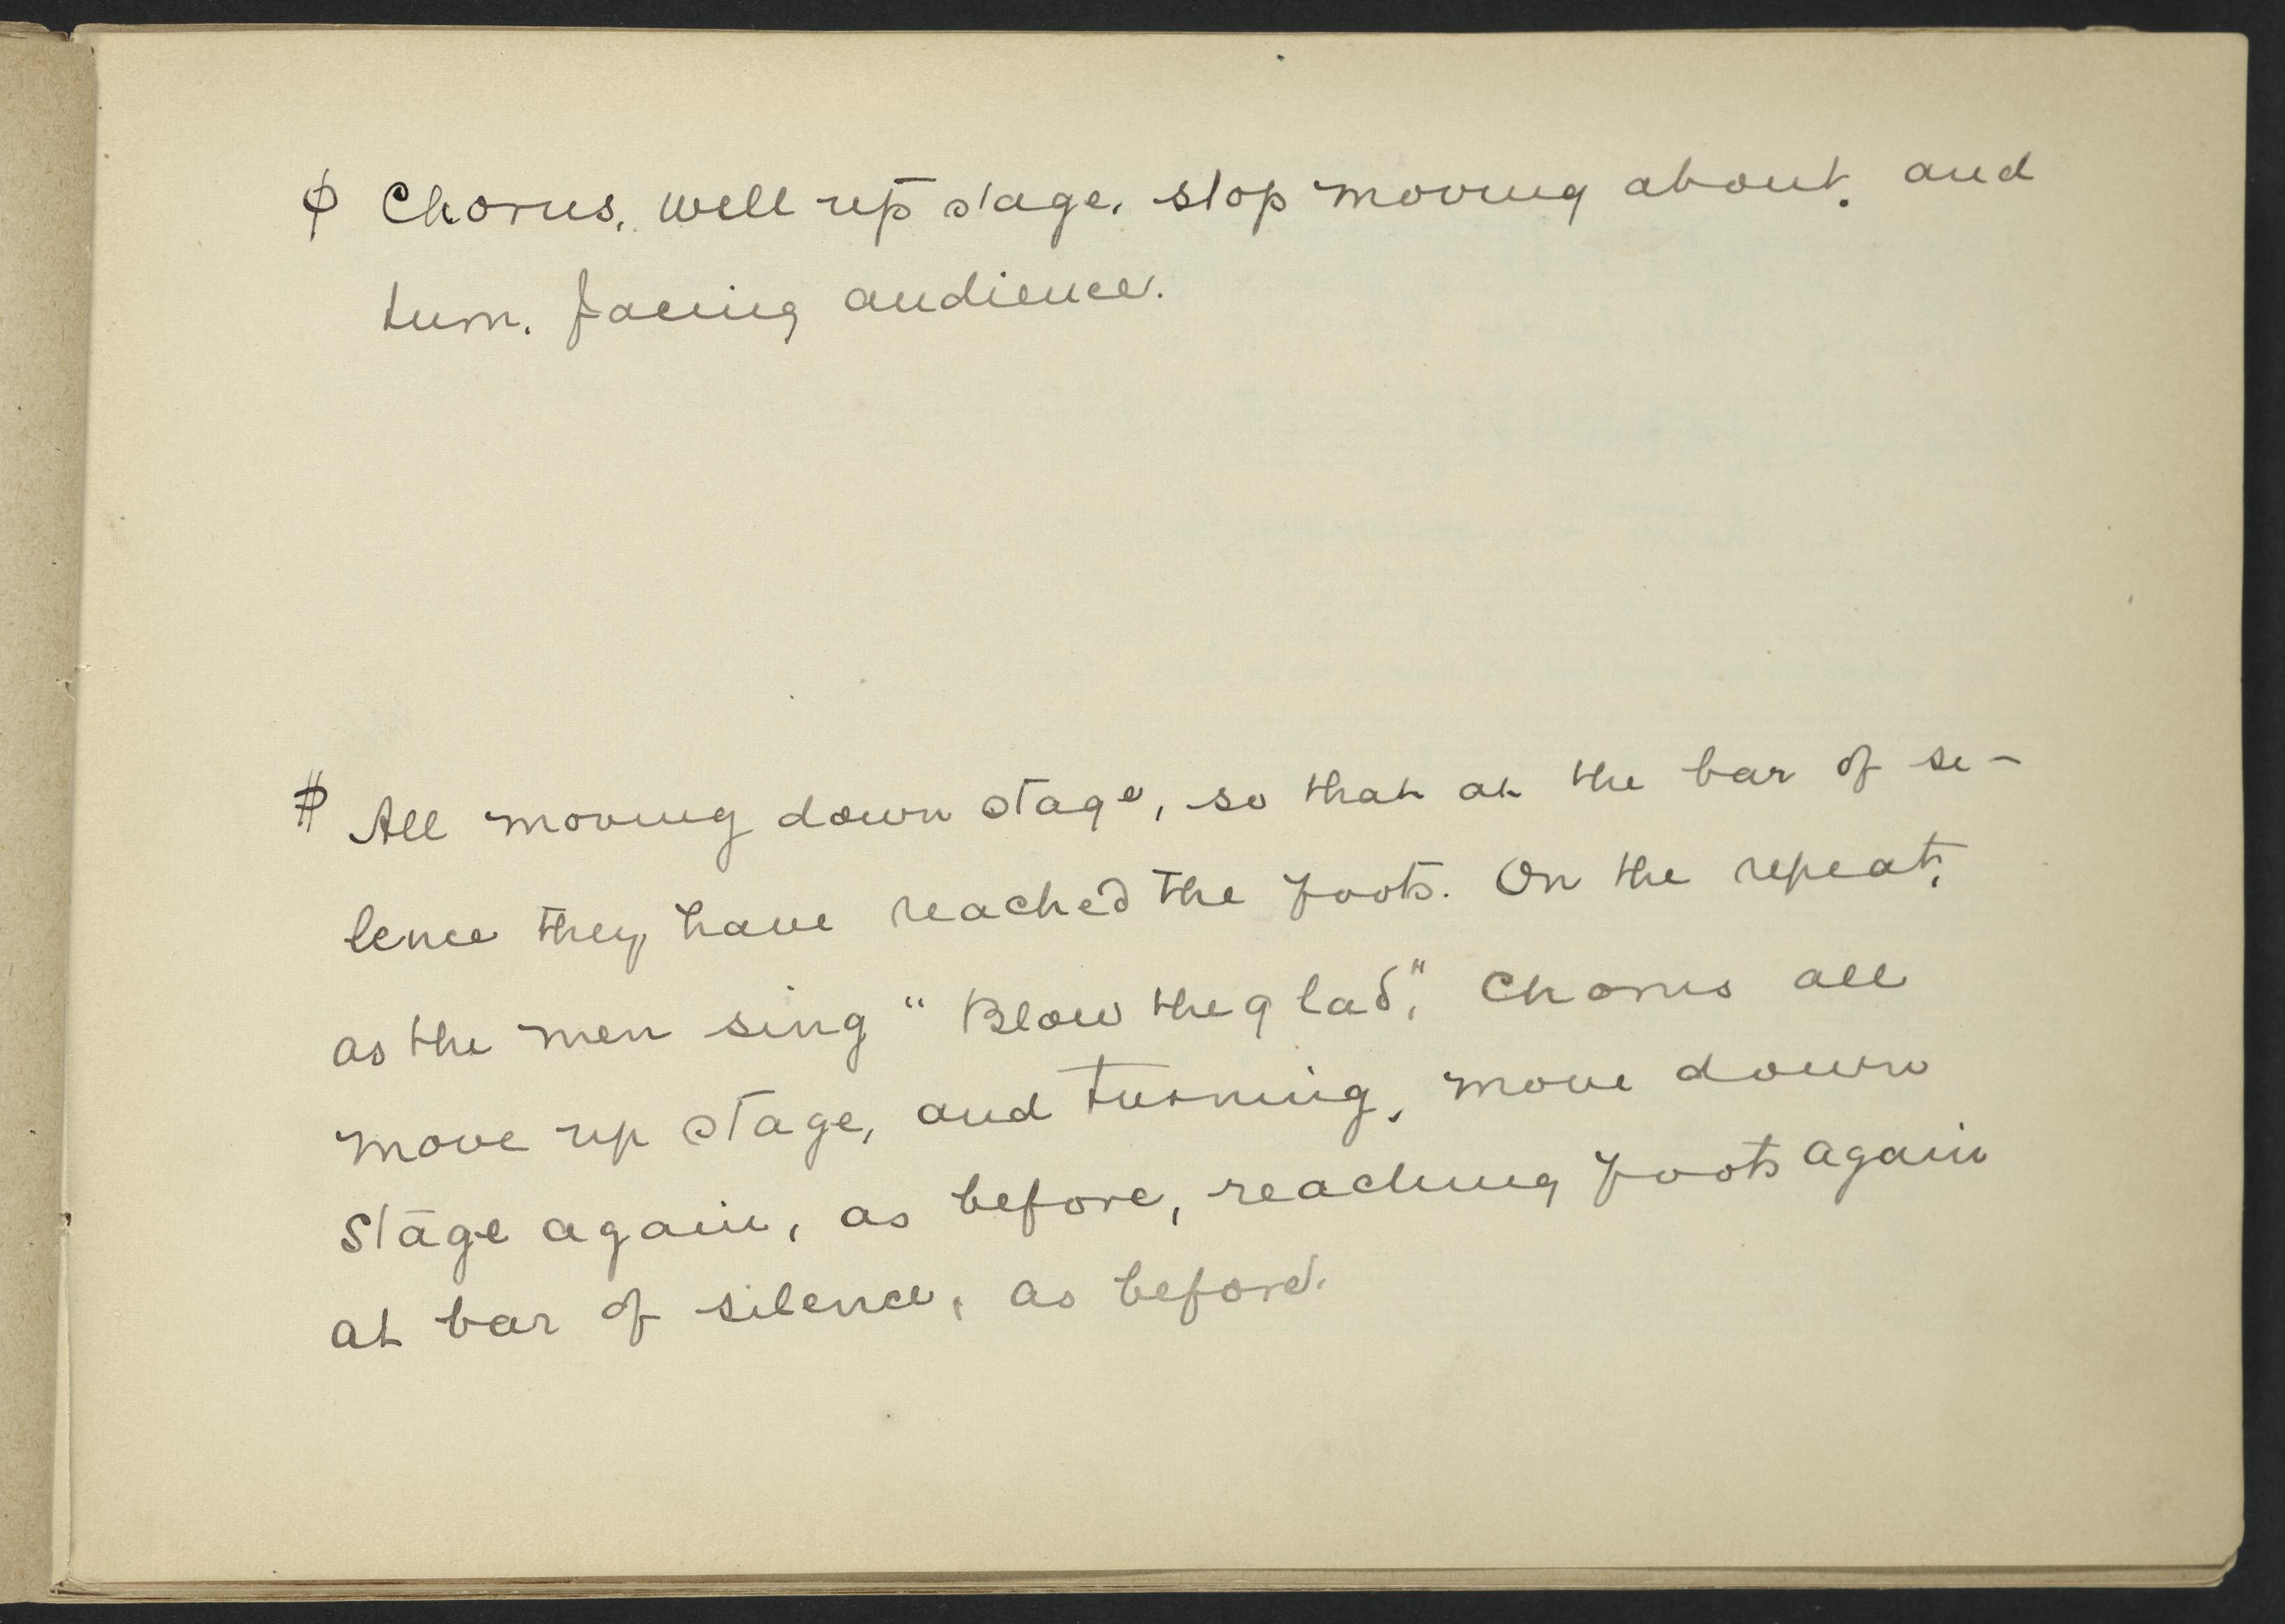 ϕ Chorus, well up stage, stop moving about, and
turn, facing audience.
⋕ All moving down stage, so that at the bar of si-
lence they have reached the foots. On the repeat,
as the men sing "Blow the glad," Chorus all
move up stage, and turning, move down
stage again, as before, reaching foots again
at bar of silence, as before.